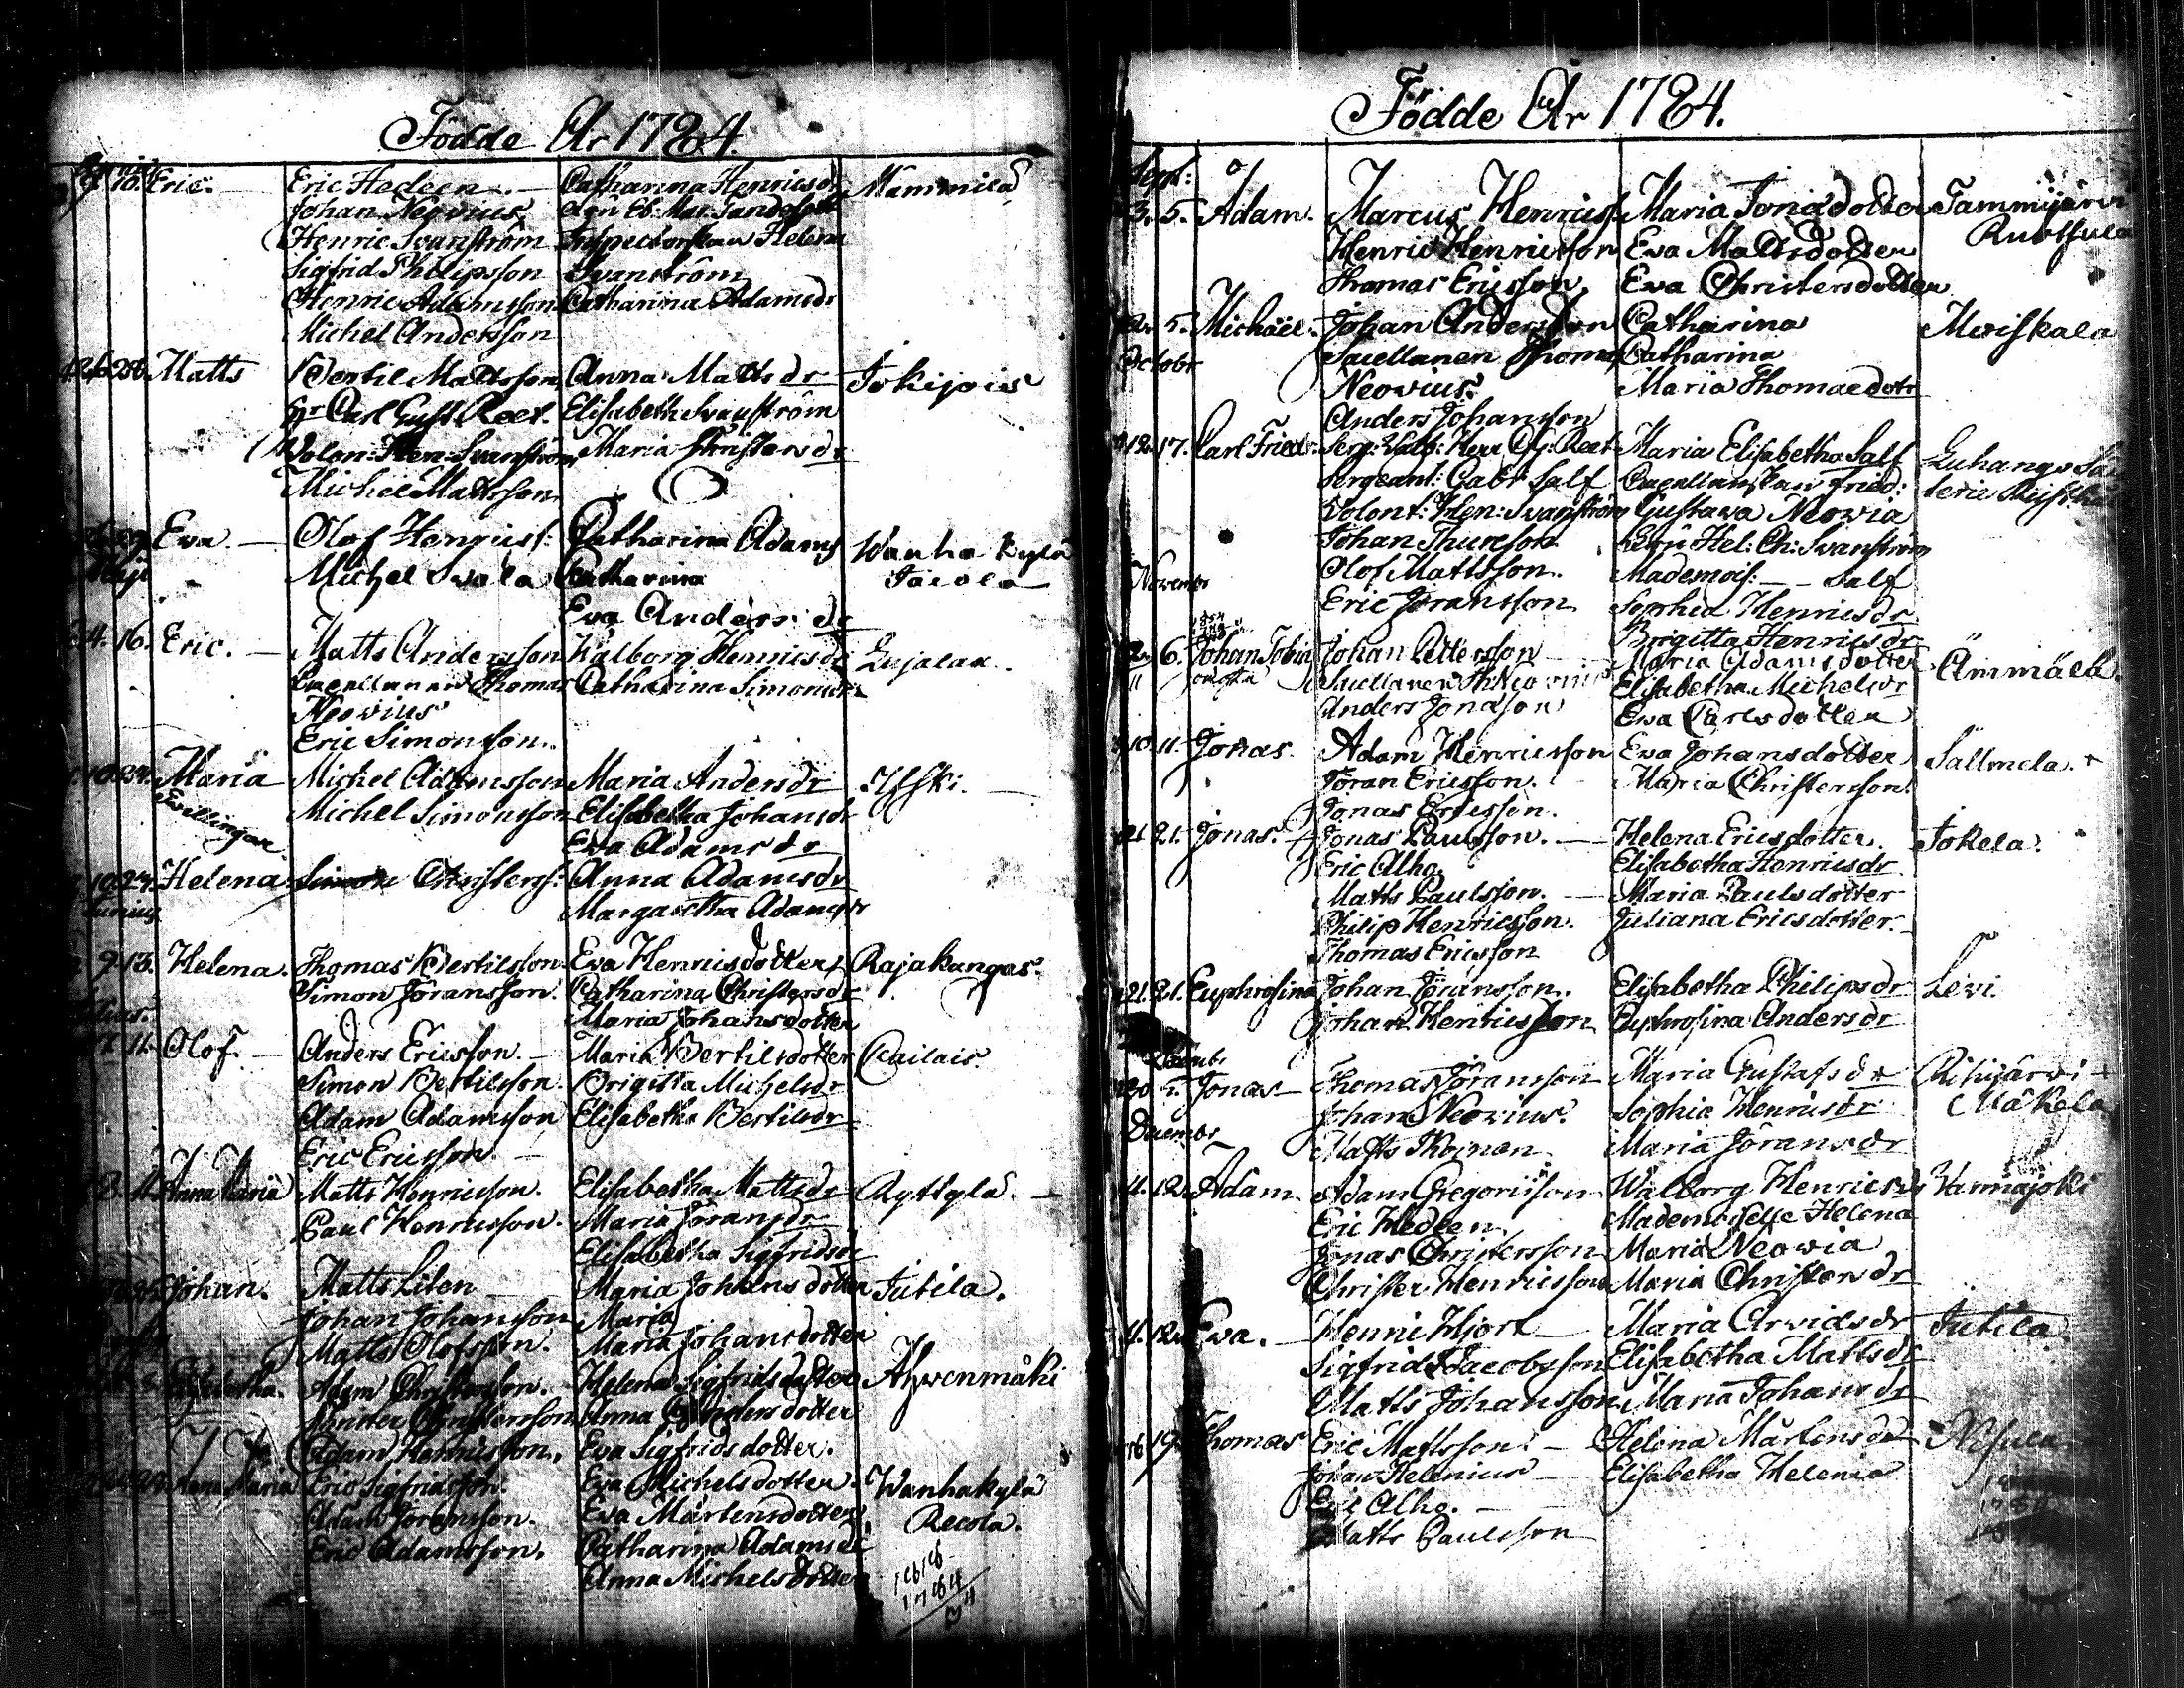 Födde År 1784.
9. 10. Eric. — Eric Hedeen — Catharina Henricsdr Mämmilä
Johan Neovius
Henric Svanström Inspectorskan Helena
Sigfrid Philipsson Svanström
Henric Adamsson Catharina Adamsdr
Michel Andersson
26. 28. Matts Bertil Mattsson Anna Matts dr Jokipois
Hr Carl Gust. Reet. Elisabeth Svanström
Volon: Hen: Svanström Maria Christersdr
Michel Mattsson
Eva — Olof Henricss: Catharina Adams Wanha Kylä
Maji Michel Svala Catharina Jaiola
Eva Anders dr
4. 16. Eric. — Matts Andersson Walborg Henricsdr Lujalaa.
Capellanen Thomas Catharina Simonsdr
Neovius
Eric Simonsson.
10. 24. Maria Michel Adamsson Maria Andersdr Ylski. —
Tvillingar Michel Simonsson Elisabetha Johansdr
Eva Adamsdr
10. 24. Helena Simon Christerss: Anna Adamsdr
Junius Margaretha Adamsdr
9. 13. Helena. Thomas Bertilsson Eva Henricsdotter Rajakangas.
Simon Jöransson. Catharina Christersdr
Maria Johansdotter
7. 11. Olof. — Anders Ericsson. — Maria Bertilsdotter Cailais.
Simon Bertilsson Brigitta Michelsdr
Adam Adamsson Elisabetha Bertilsdr
Eric Ericsson. —
Anna Maria Matts Henricsson. Elisabetha Mattsdr Ryttylä. —
Paul Henricsson. Maria Joransdr
Elisabetha Sigfridsdr
Johan. Matts Liten — Maria Johansdotter Jutila.
Johan Johansson Maria
Matts Olofsson. Maria Johansdotter
Adam Christersson. Helena Sigfridsdotter Ahvenmäki
Christersson Anna Andersdotter
Adam Henricsson. Eva Sigfridsdotter.
Anna Maria Eric Sigfridsson. Eva Michelsdotter. Wanhakylä
Adam Joransson. Eva Mårtensdotter Recola.
Eric Adamsson. Catharina Adamsdr
Anna Michelsdotter
Födde År 1784.
Sept:
3. 5. Adam. Marcus Henricss Maria Jonædotter Tammijärvi
Henric Henricsson Eva Mattsdotter Ruotsula
Thomas Ericsson. Eva Christersdotter
5. Michäel. Johan Andersson Catharina Moiskala
October Sacellanen Thomas Catharina
Neovius. Maria Thomaedotr
Anders Johansson
12. 17. Carl Fried: Serg: Herr C. G. Reet Maria Elisabetha Salf Luhango
Sergeant: Gabr Salf Capellanskan Fried:
Volont: Hen: Svanström Gustava Neovia
Johan Thuresson Hel: Ch: Svanström
Novembr Olof Mattsson. Mademois: — Salf
Eric Joransson Sophia Henricsdr
Brigitta Henricsdr
2. 6. Johan Tobia Johan Pettersson Maria Adamsdotter Ämmälä.
Sacellanen Th Neovius Elisabetha Michelsdr
Anders Jonasson Eva Carlsdotter
10. 11. Jonas. Adam Henricsson Eva Johansdotter Sällmela. +
Joran Ericsson. Maria Christersson.
Jonas Ericsson.
21. 21. Jonas. Jonas Paulsson. — Helena Ericsdotter. Jokela.
Eric Alho. Elisabetha Henricsdr
Matts Paulsson. — Maria Paulsdotter
Philip Henricsson. Juliana Ericsdotter.
Thomas Ericsson
21. 21. Euphrosina Johan Joransson. Elisabetha Philipsdr Levi.
Johan Henricsson Euphrosina Andersdr
Jonas — Thomas Joransson Maria Gustafsdr Rihijärvi
Johan Neovius. Sophia Henricsdr Mäkela
Decembr Matts Moinan Maria Joransdr
4. 12. Adam. Adam Gregorisson Walborg Henricsdr Warmajoki
Eric Hedeen Mademoiselle Helena
Jonas Christersson Maria Neovia
Christer Henricsson Maria Christersdr
4. 12. Eva. — Henric Hjort Maria Arvidsdr Jutila
Sigfrid Jacobsson Elisabetha Mattsdr
Matts Johansson Maria Johansdr
19. Thomas Eric Mattsson. — Helena Mårtensdr
Johan Helenius — Elisabetha Helenia
Eric Alho. —
Matts Paulsson